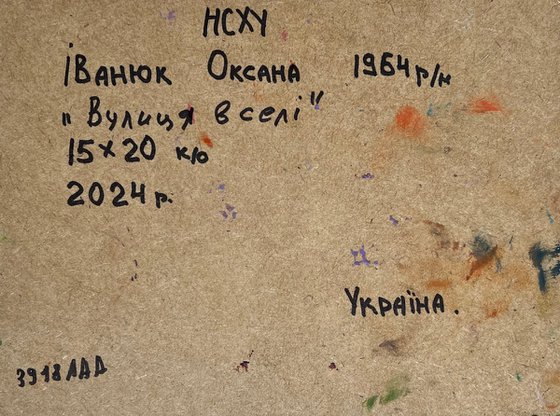 НСХУ
Іванюк Оксана 1964 р/н
"Вулиця в селі"
15x20 к/о
2024 р.
Україна.
3918 ЛАД